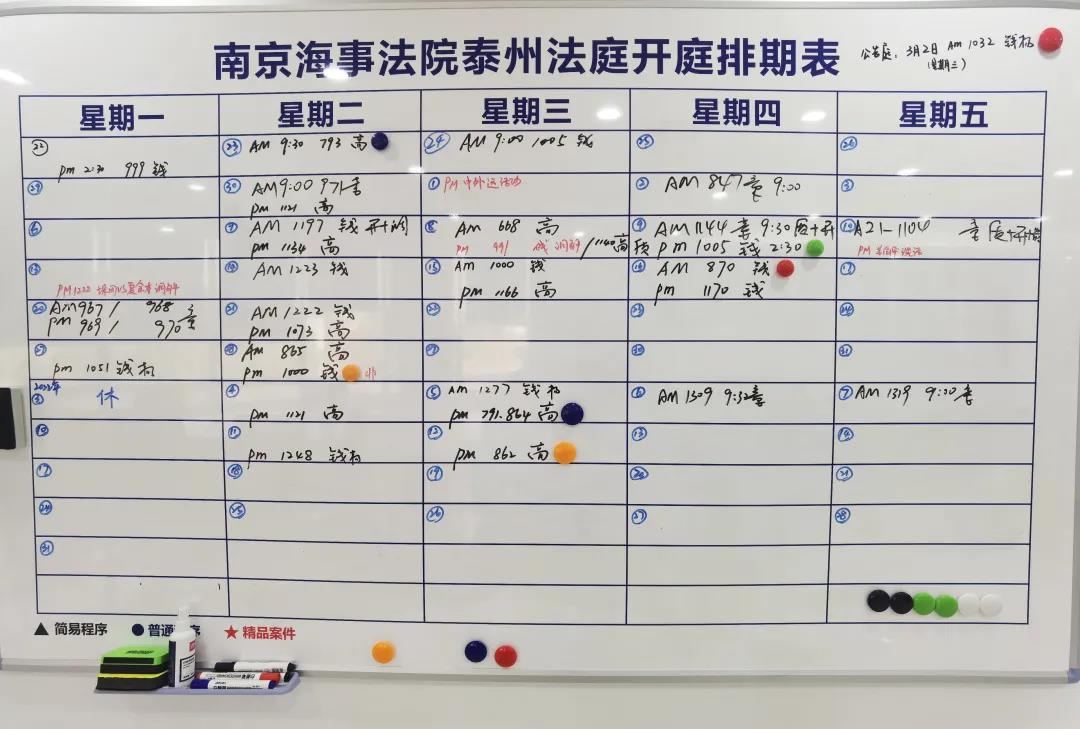 南京海事法院泰州法庭开庭排期表
公告庭：3月2日 Am 1032 钱
（星期三）
星期一 星期二 星期三 星期四 星期五
22 23 AM 9:30 793 高 24 AM 9:00 1005 钱 25 26
pm 2:30 999 钱
29 30 AM 9:00 971 1 PM 中外运活动 2 AM 847 9:00 3
pm 1121 高
6 7 AM 1197 钱 开+调 8 AM 668 高 9 AM 1144 9:30 10 A21-1104
pm 1134 高 PM 991 钱 调解/1140高 pm 1005 钱 2:30 PM
13 14 AM 1223 钱 15 AM 1000 钱 16 AM 870 钱 17
PM 1222 调解 pm 1166 高 pm 1170 钱
20 AM 967/ 968 21 AM 1222 钱 22 23 24
PM 969/ 970 pm 1073 高
27 28 AM 865 高 29 30 31
pm 1051 钱 pm 1000 钱
2022年
3 休 4 5 AM 1277 钱 6 AM 1309 9:32 7 AM 1319 9:00
pm 1121 高 pm 791.864 高
10 11 12 13 14
pm 1248 钱 pm 862 高
17 18 19 20 21
24 25 26 27 28
31
▲ 简易程序 ● 普通 序 ★ 精品案件